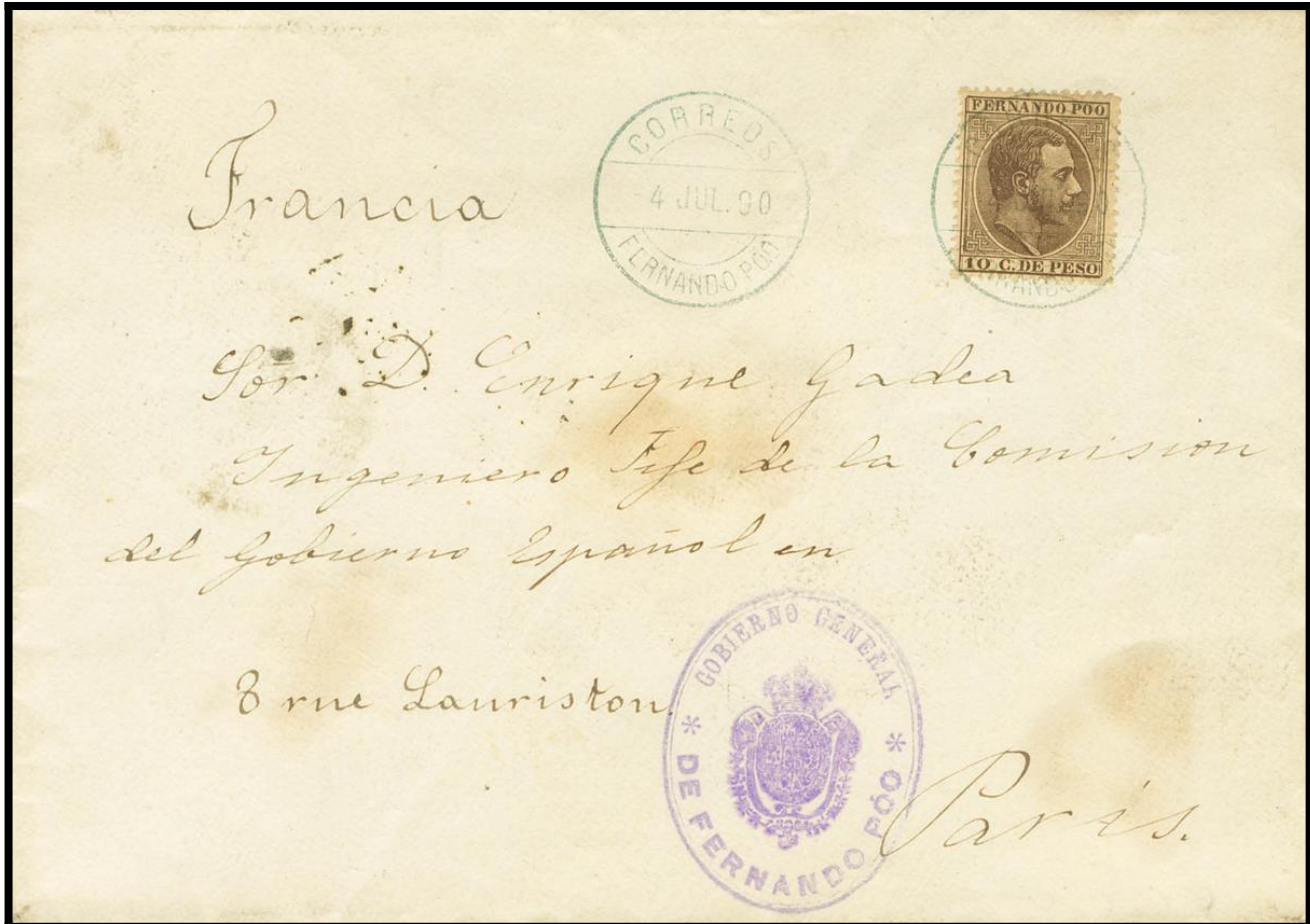 Francia
CORREOS
4 JUL. 90
FERNANDO PÓO
FERNANDO POO
10 C. DE PESO
Sor. D. Enrique Gadea
Ingeniero Jefe de la Comision
del Gobierno Español en
8 rue Lauriston
GOBIERNO GENERAL
* DE FERNANDO PÓO *
Paris.